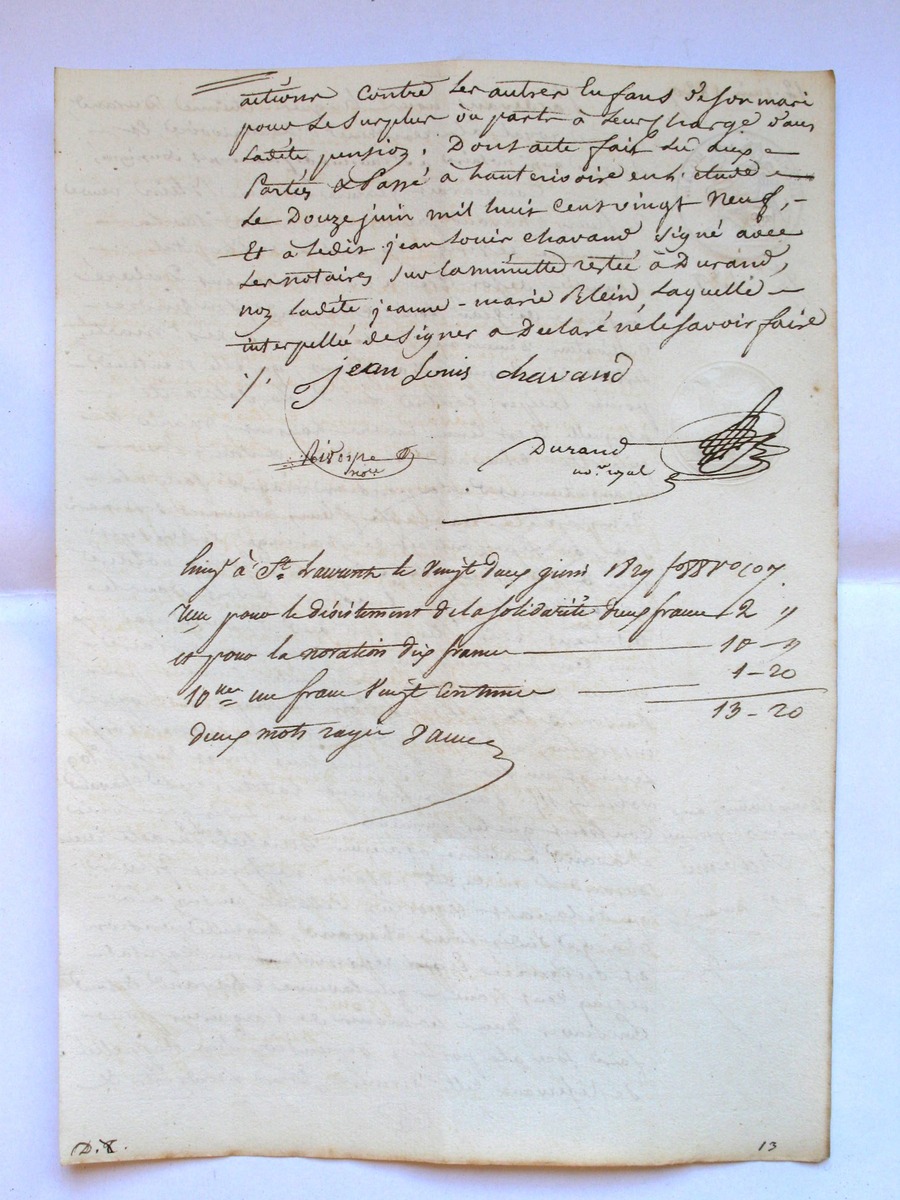 actions contre les autres Enfans de son mari
pour le surplus ou parts à leurs charge dans
ladite pension. Dont acte fait du dix =
Parties & Passé à hauterivoire en n. étude =
Le Douze juin mil huit cent vingt Neuf, -
Et à ledit jean Louis Chavand signé avec
Les notaires sur la minutte restée à Durand,
non ladite jeanne-marie Blein Laquelle -
interpellée de signer a Declaré ne le savoir faire
./. jean Louis chavand
Durand
no.re royal
not.re
à St. Laurent le vingt deux juin 1829 fo
pour le désistement de la solidarité deux francs 2 "
et pour la novation dix francs 10 - "
10me un franc vingt centimes 1-20
13-20
deux mots rayés
D.T. 13